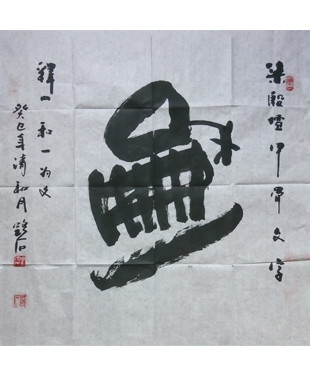 集殷墟甲骨文字
释一和一为文
癸巳年清和月